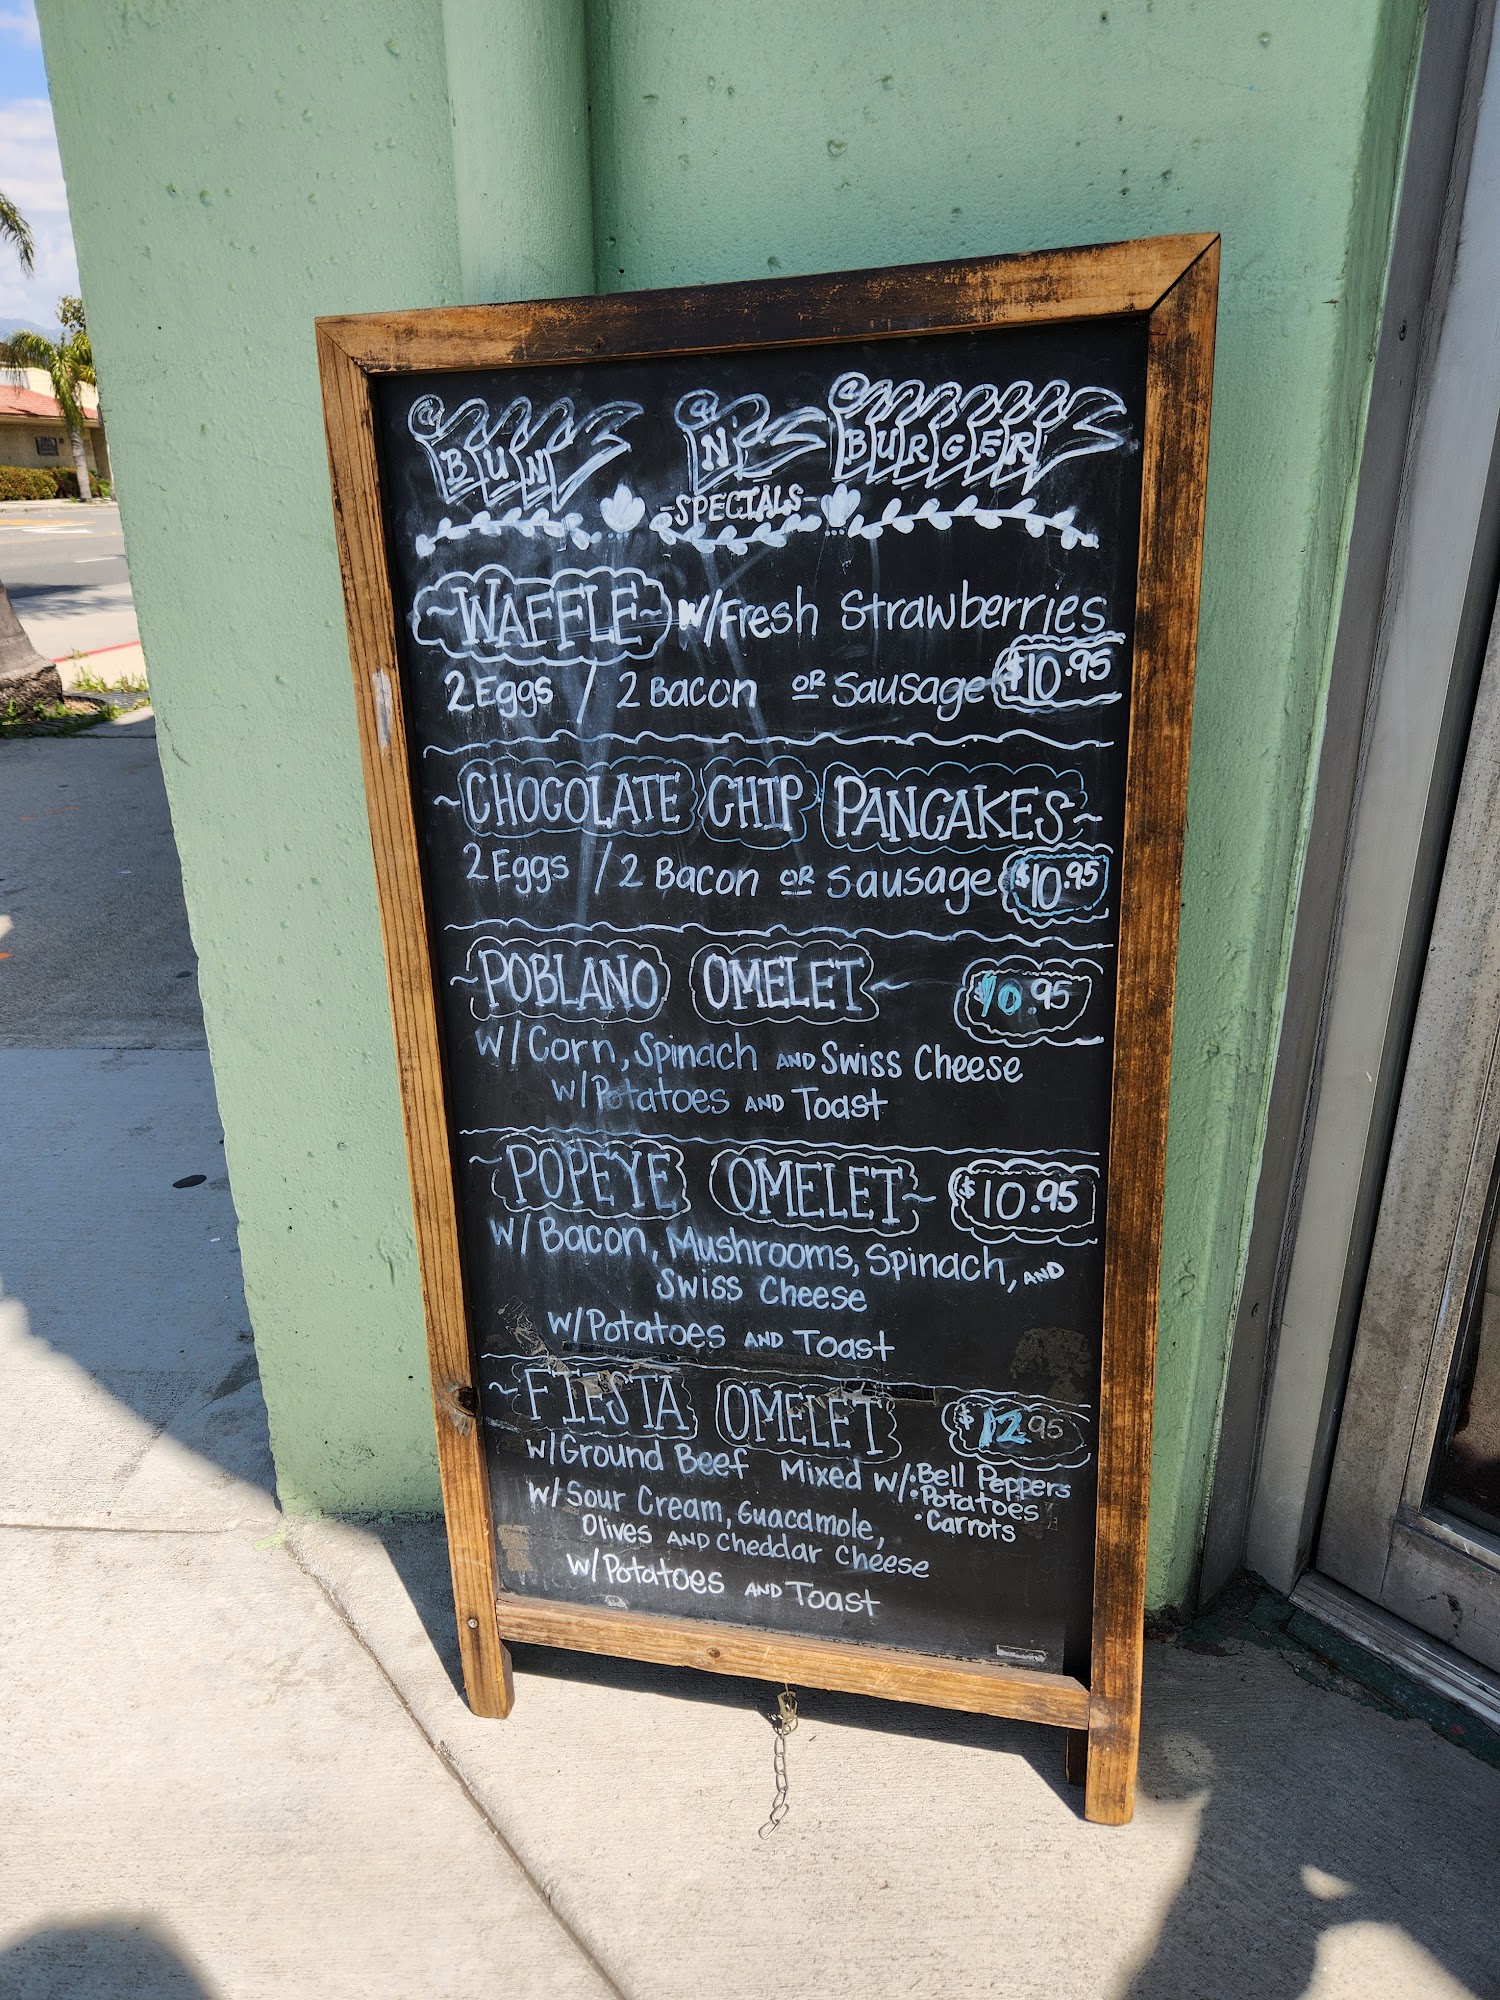 BUN N' BURGER
-SPECIALS-
~WAFFLE~ W/Fresh Strawberries
2 Eggs / 2 Bacon OR Sausage $10.95
~CHOCOLATE CHIP PANCAKES~
2 Eggs / 2 Bacon OR Sausage $10.95
~POBLANO OMELET~ $10.95
W/Corn, Spinach AND Swiss Cheese
W/Potatoes AND Toast
~POPEYE OMELET~ $10.95
W/Bacon, Mushrooms, Spinach, AND
Swiss Cheese
W/Potatoes AND Toast
~FIESTA OMELET $12.95
W/Ground Beef Mixed W/ • Bell Peppers
• Potatoes
• Carrots
W/Sour Cream, Guacamole,
Olives AND Cheddar Cheese
W/Potatoes AND Toast